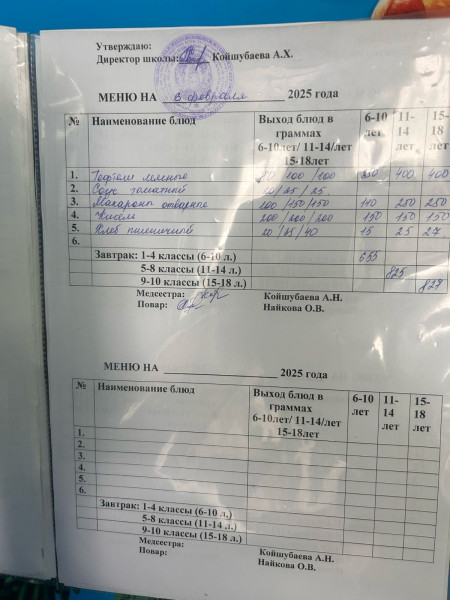 Утверждаю:
Директор школы: Койшубаева А.Х.
МЕНЮ НА 3 февраля 2025 года
№ Наименование блюд Выход блюд в граммах 6-10лет/ 11-14/лет 15-18лет 6-10 лет 11-14 лет 15-18 лет
1. Тефтели 80 /100 /100 350 400 400
2. Соус томатный /25 /25
3. Макароны отварные 100 /150/150 110 250 250
4. Кисель 200 /200 /200 150 150 150
5. Хлеб пшеничный 20 /25 /40 15 25 27
6.
Завтрак: 1-4 классы (6-10 л.) 655
5-8 классы (11-14 г.) 825
9-10 классы (15-18 л.) 827
Медсестра: Койшубаева А.Н.
Повар: Найкова О.В.
МЕНЮ НА ____________________ 2025 года
№ Наименование блюд Выход блюд в граммах 6-10лет/ 11-14/лет 15-18лет 6-10 лет 11-14 лет 15-18 лет
1.
2.
3.
4.
5.
6.
Завтрак: 1-4 классы (6-10 л.)
5-8 классы (11-14 г.)
9-10 классы (15-18 л.)
Медсестра: Койшубаева А.Н.
Повар: Найкова О.В.